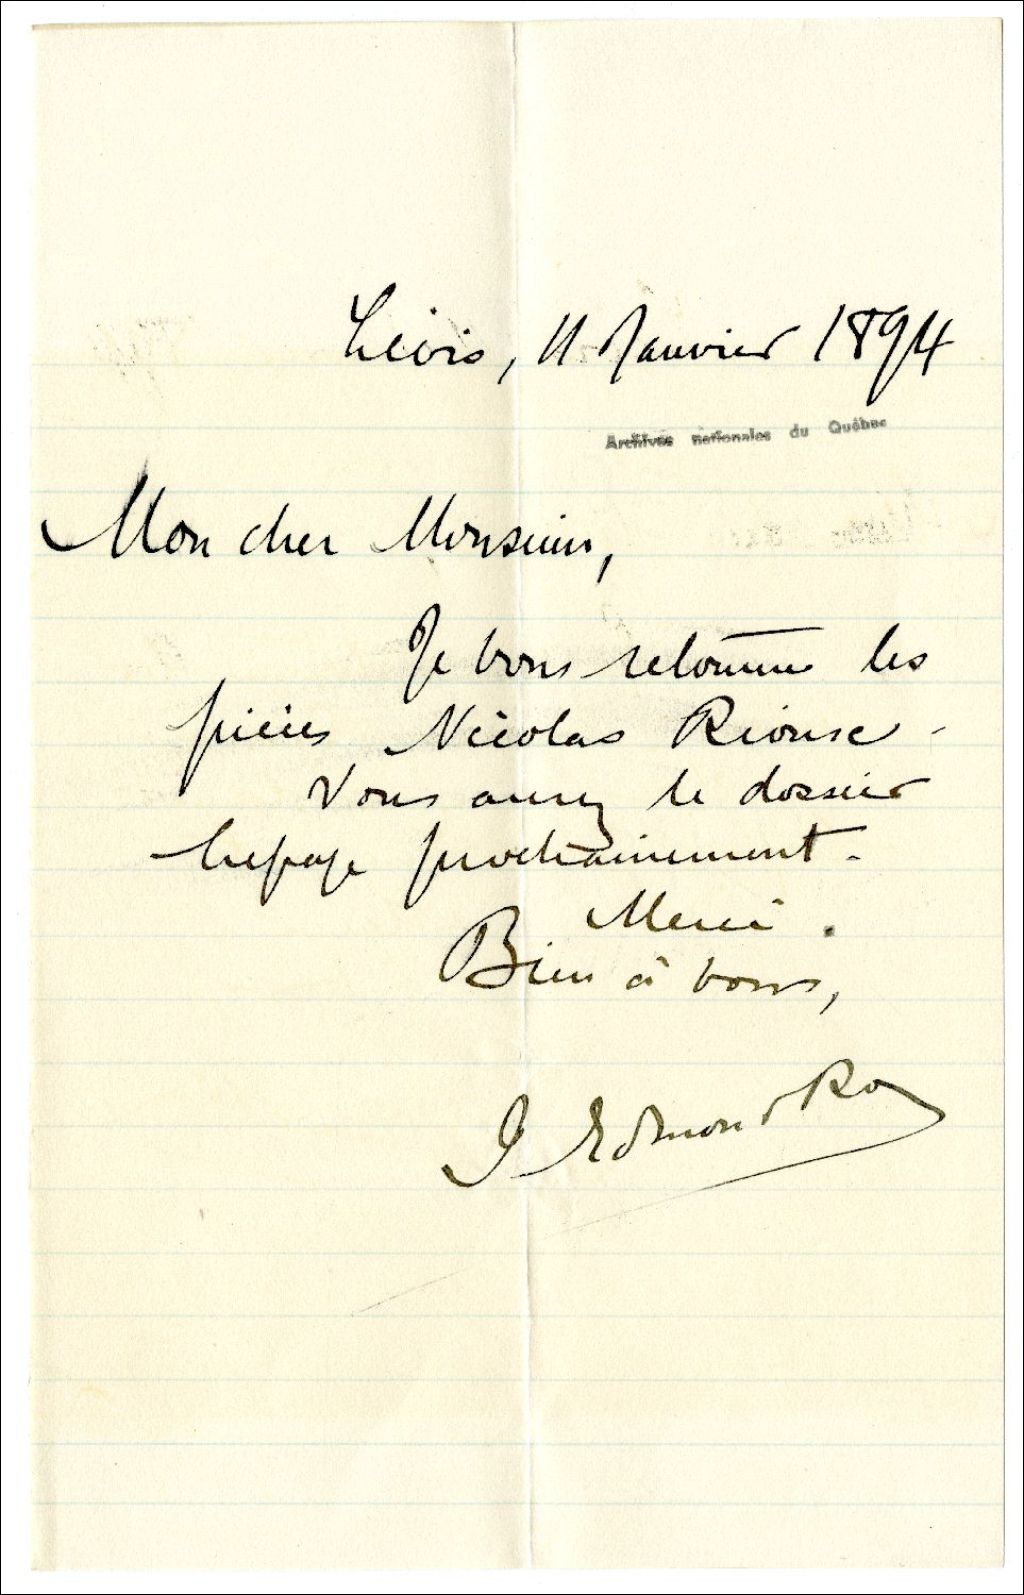 Lévis, 11 Janvier 1894
Archives nationales du Québec
Mon cher Monsieur,
Je vous retourne les
pièces Nicolas Riouse -
Vous aurez le dossier
Lepage prochainement.
Merci.
Bien à vous,
J Edmond Roy